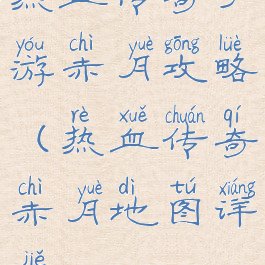 yóu chì yuè gōng lüè
游赤月攻略
rè xuě chuán qí
（热血传奇
chì yuè dì tú xiáng
赤月地图详
jiě